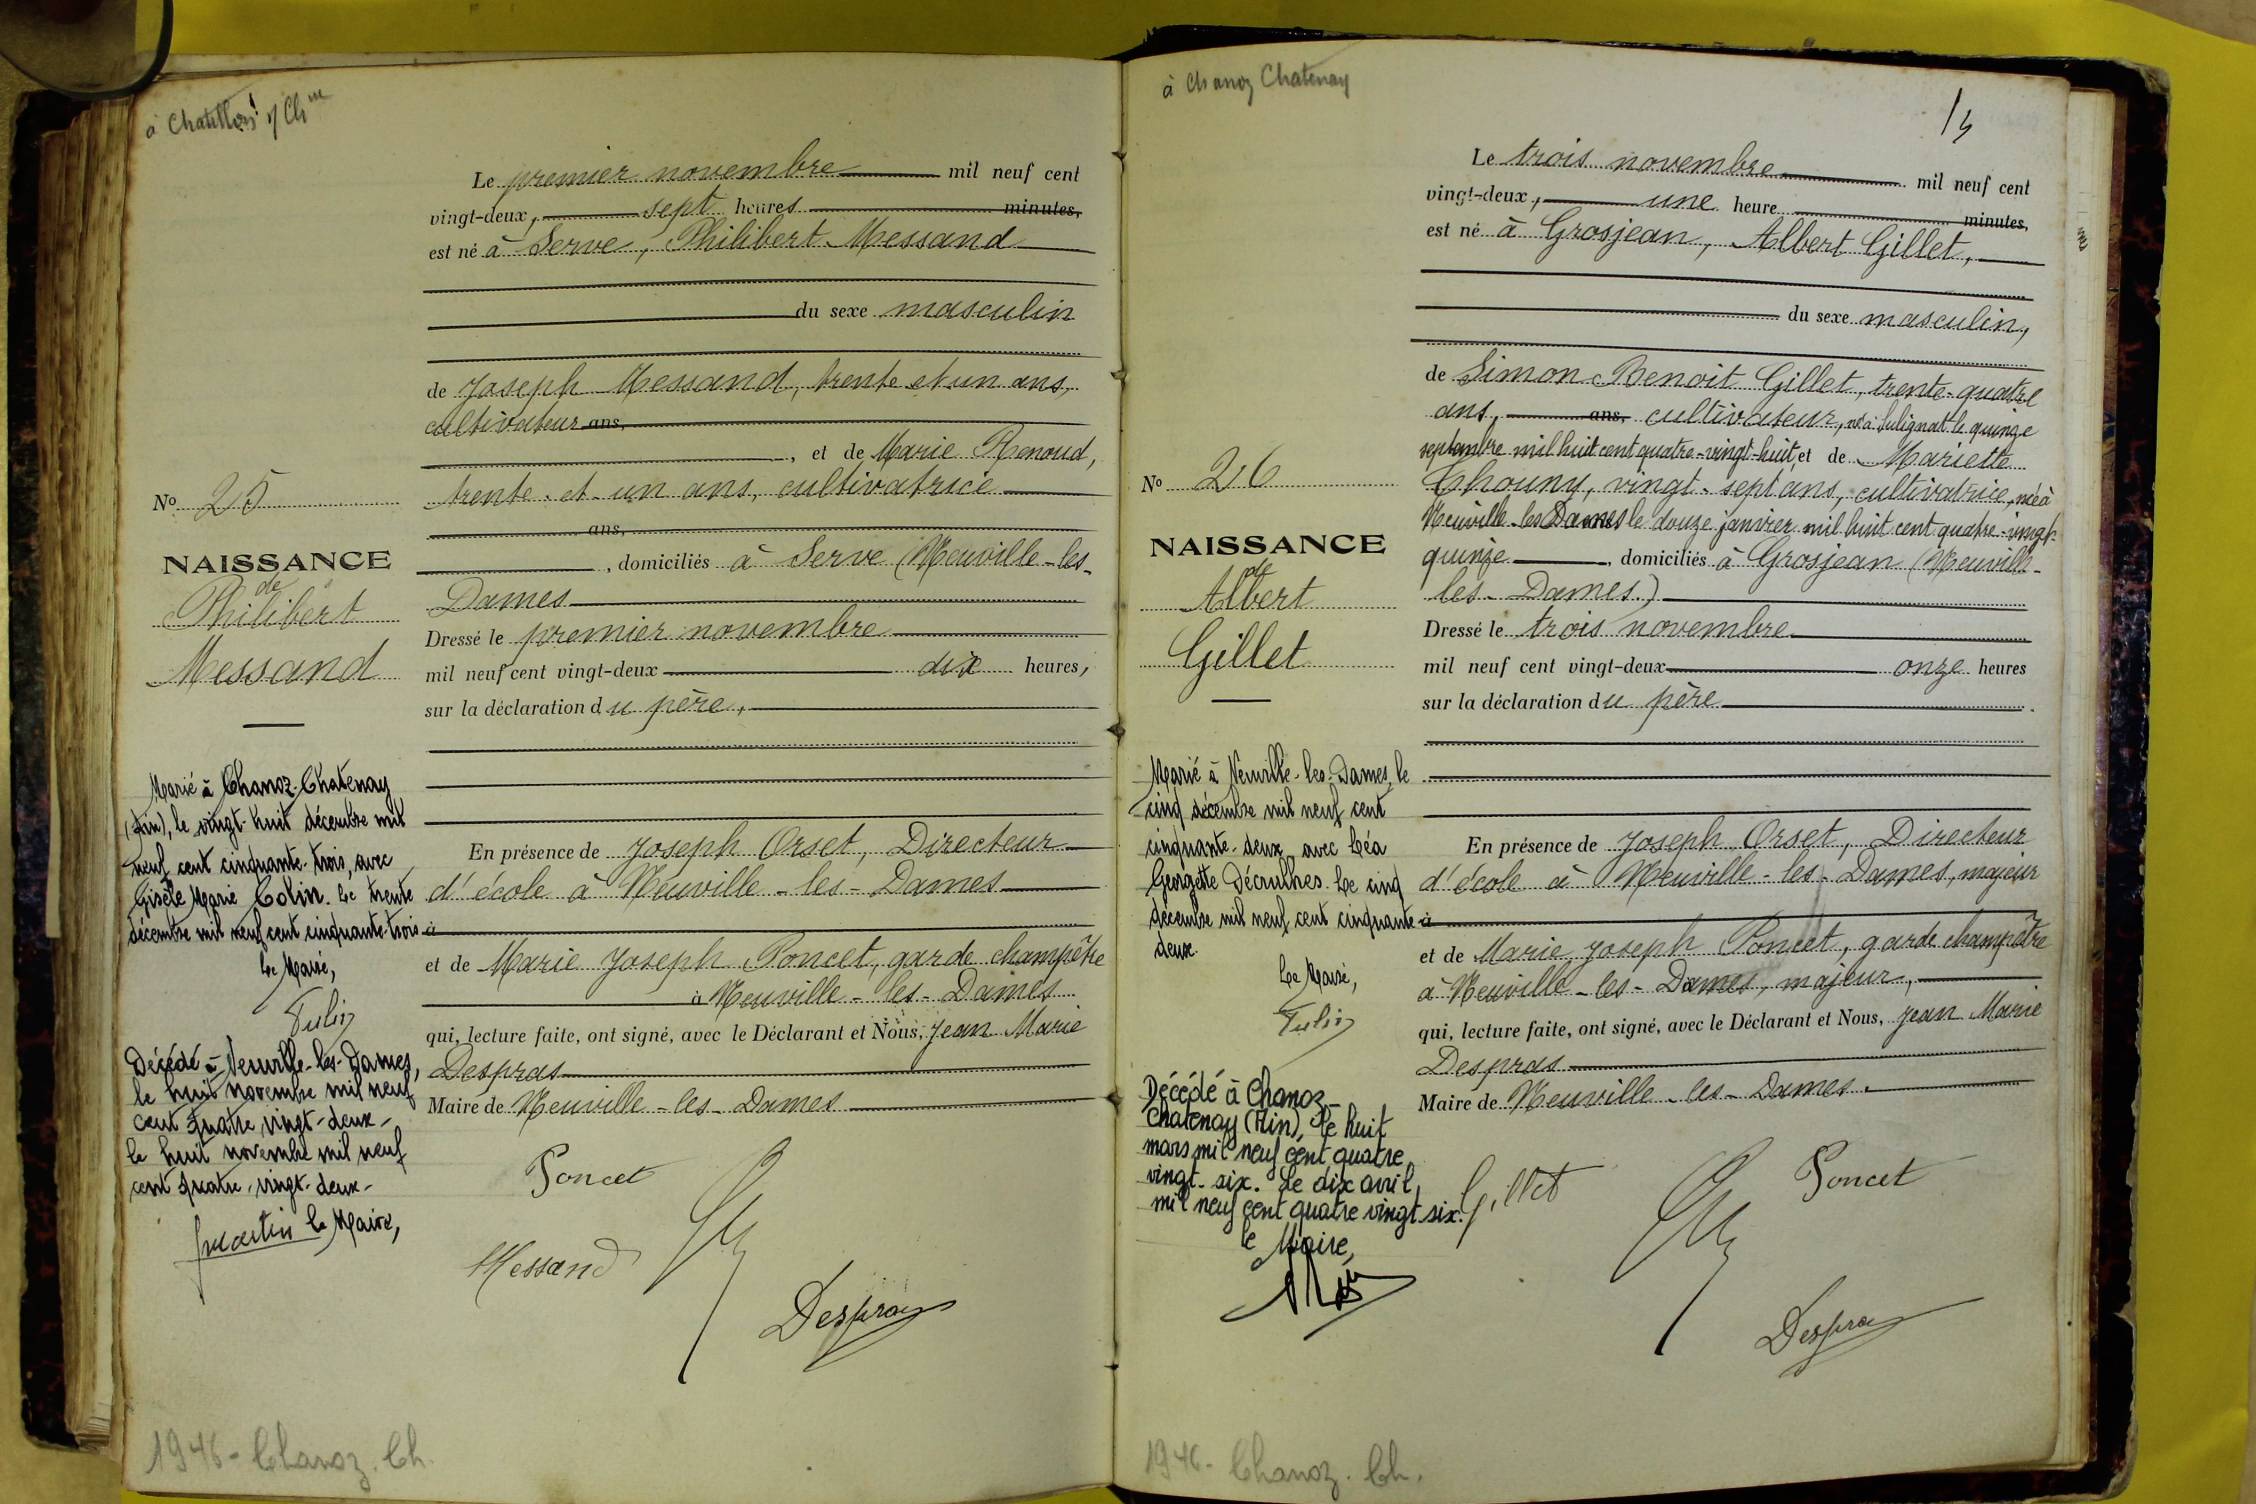 à Chatillon s/ Ch^ne
Le premier novembre mil neuf cent
vingt-deux, sept heures minutes,
est né à Serve, Philibert Messand
du sexe masculin
de Joseph Messand, trente et un ans,
cultivateur ans,
, et de Marie Renoud,
trente et un ans, cultivatrice
ans,
, domiciliés à Serve (Neuville-les-
Dames
Dressé le premier novembre
mil neuf cent vingt-deux dix heures,
sur la déclaration du père,
En présence de Joseph Orset, Directeur
d'école à Neuville-les-Dames
à
et de Marie Joseph Poncet, garde champêtre
à Neuville-les-Dames
qui, lecture faite, ont signé, avec le Déclarant et Nous, Jean Marie
Despras
Maire de Neuville-les-Dames
Poncet
Messand
Despras
No 25
NAISSANCE
de
Philibert
Messand
Marié à Chanoz-Chatenay
(Ain), le vingt-huit décembre mil
neuf cent cinquante-trois, avec
Gisèle Marie Colin. Le trente
décembre mil neuf cent cinquante-trois
Le Maire,
Tulin
Décédé à Neuville-les-Dames,
le huit novembre mil neuf
cent quatre vingt-deux-
le huit novembre mil neuf
cent quatre-vingt-deux-
le Maire,
1946 - Chanoz. Ch.
à Chanoz Chatenay
Le trois novembre mil neuf cent
vingt-deux, une heure minutes,
est né à Grosjean, Albert Gillet,
du sexe masculin,
de Simon Benoit Gillet, trente-quatre
ans, ans, cultivateur, né à Sulignat le quinze
septembre mil huit cent quatre-vingt-huit, et de Mariette
Chouny, vingt-sept ans, cultivatrice, née à
Neuville-les-Dames le douze janvier mil huit cent quatre-vingt-
quinze, domiciliés à Grosjean (Neuville-
les-Dames.)
Dressé le trois novembre
mil neuf cent vingt-deux onze heures
sur la déclaration du père
En présence de Joseph Orset, Directeur
d'école à Neuville-les-Dames, majeur
à
et de Marie Joseph Poncet, garde champêtre
à Neuville-les-Dames, majeur,
qui, lecture faite, ont signé, avec le Déclarant et Nous, Jean Marie
Despras
Maire de Neuville-les-Dames.
Gillet
Poncet
Despras
No 26
NAISSANCE
de
Albert
Gillet
Marié à Neuville-les-Dames, le
cinq décembre mil neuf cent
cinquante-deux, avec Léa
Georgette Décrulhes. Le cinq
décembre mil neuf cent cinquante-
deux.
Le Maire,
Tulin
Décédé à Chanoz-
Chatenay (Ain), le huit
mars mil neuf cent quatre
vingt-six. Le dix avril
mil neuf cent quatre vingt six.
le Maire,
1946 - Chanoz. Ch.